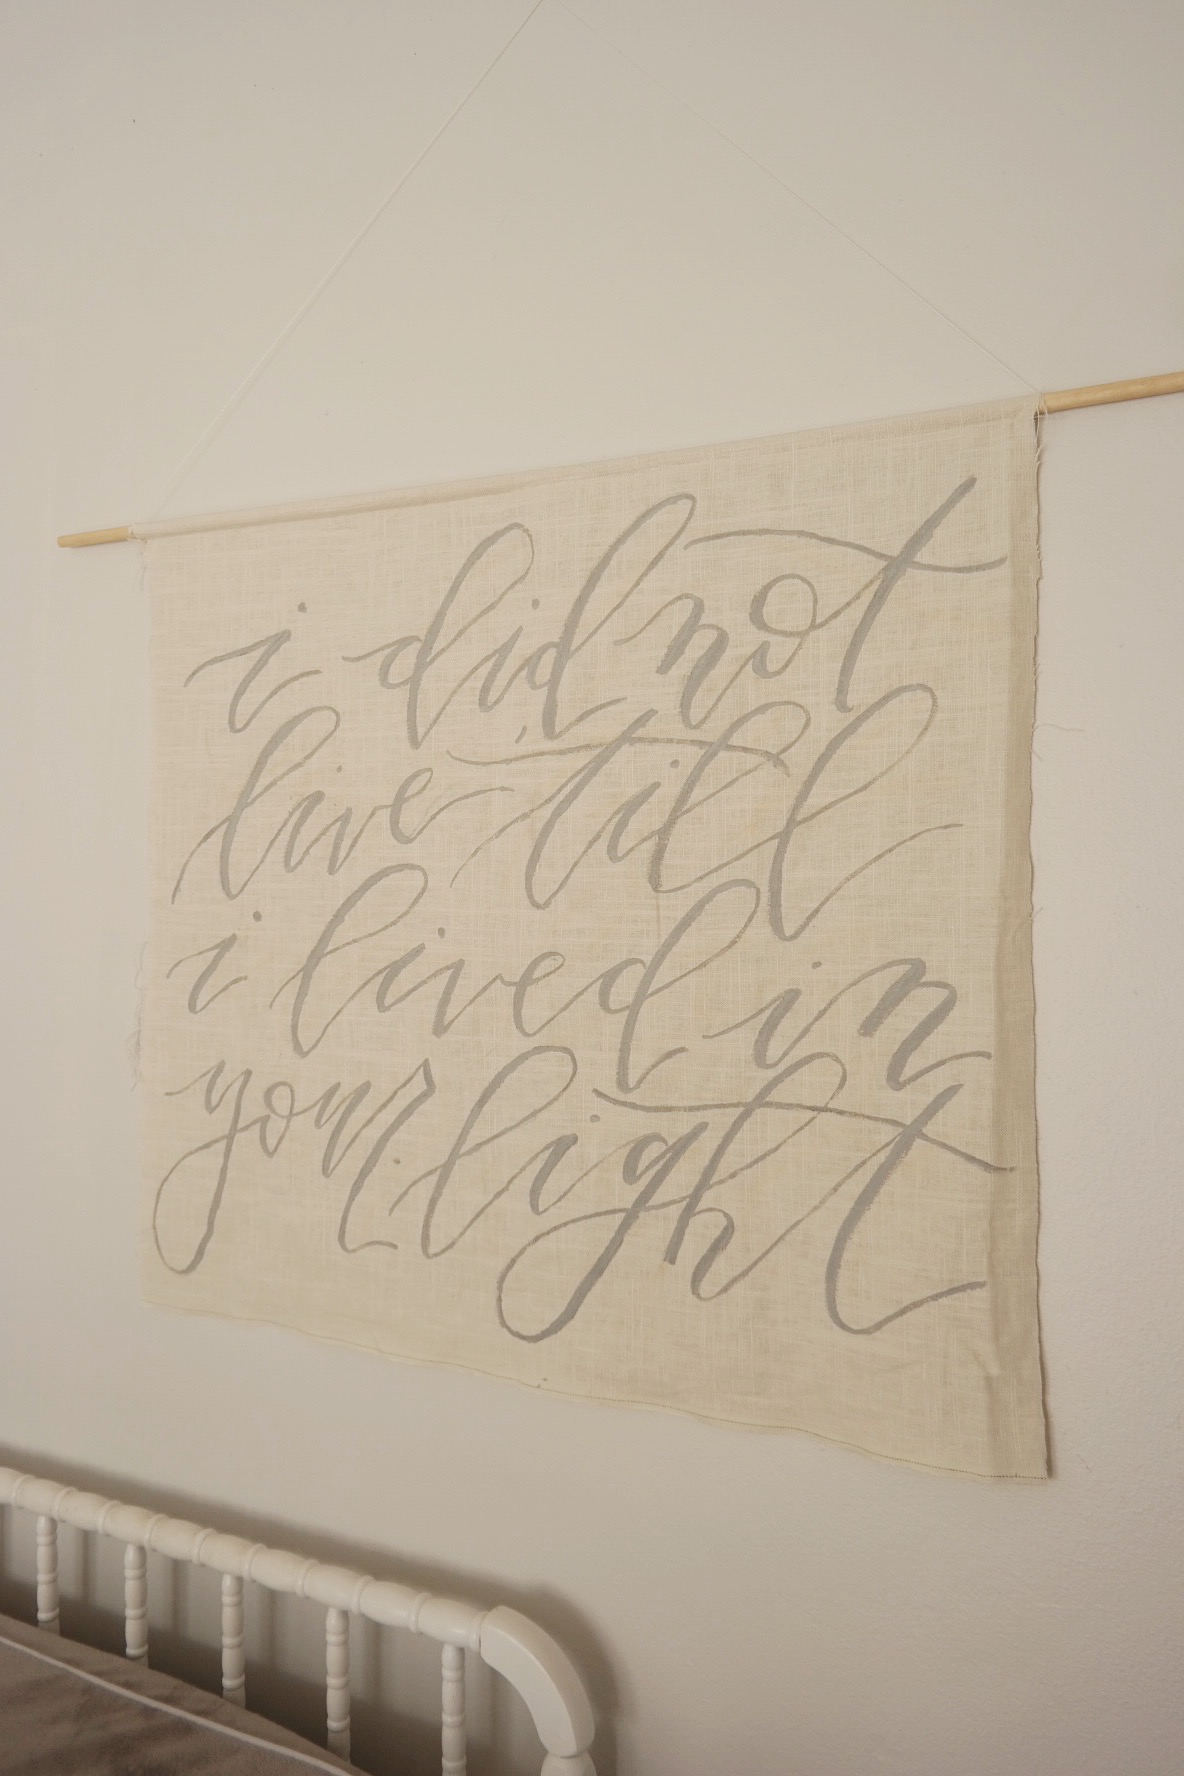 i did not
live till
i lived in
your light